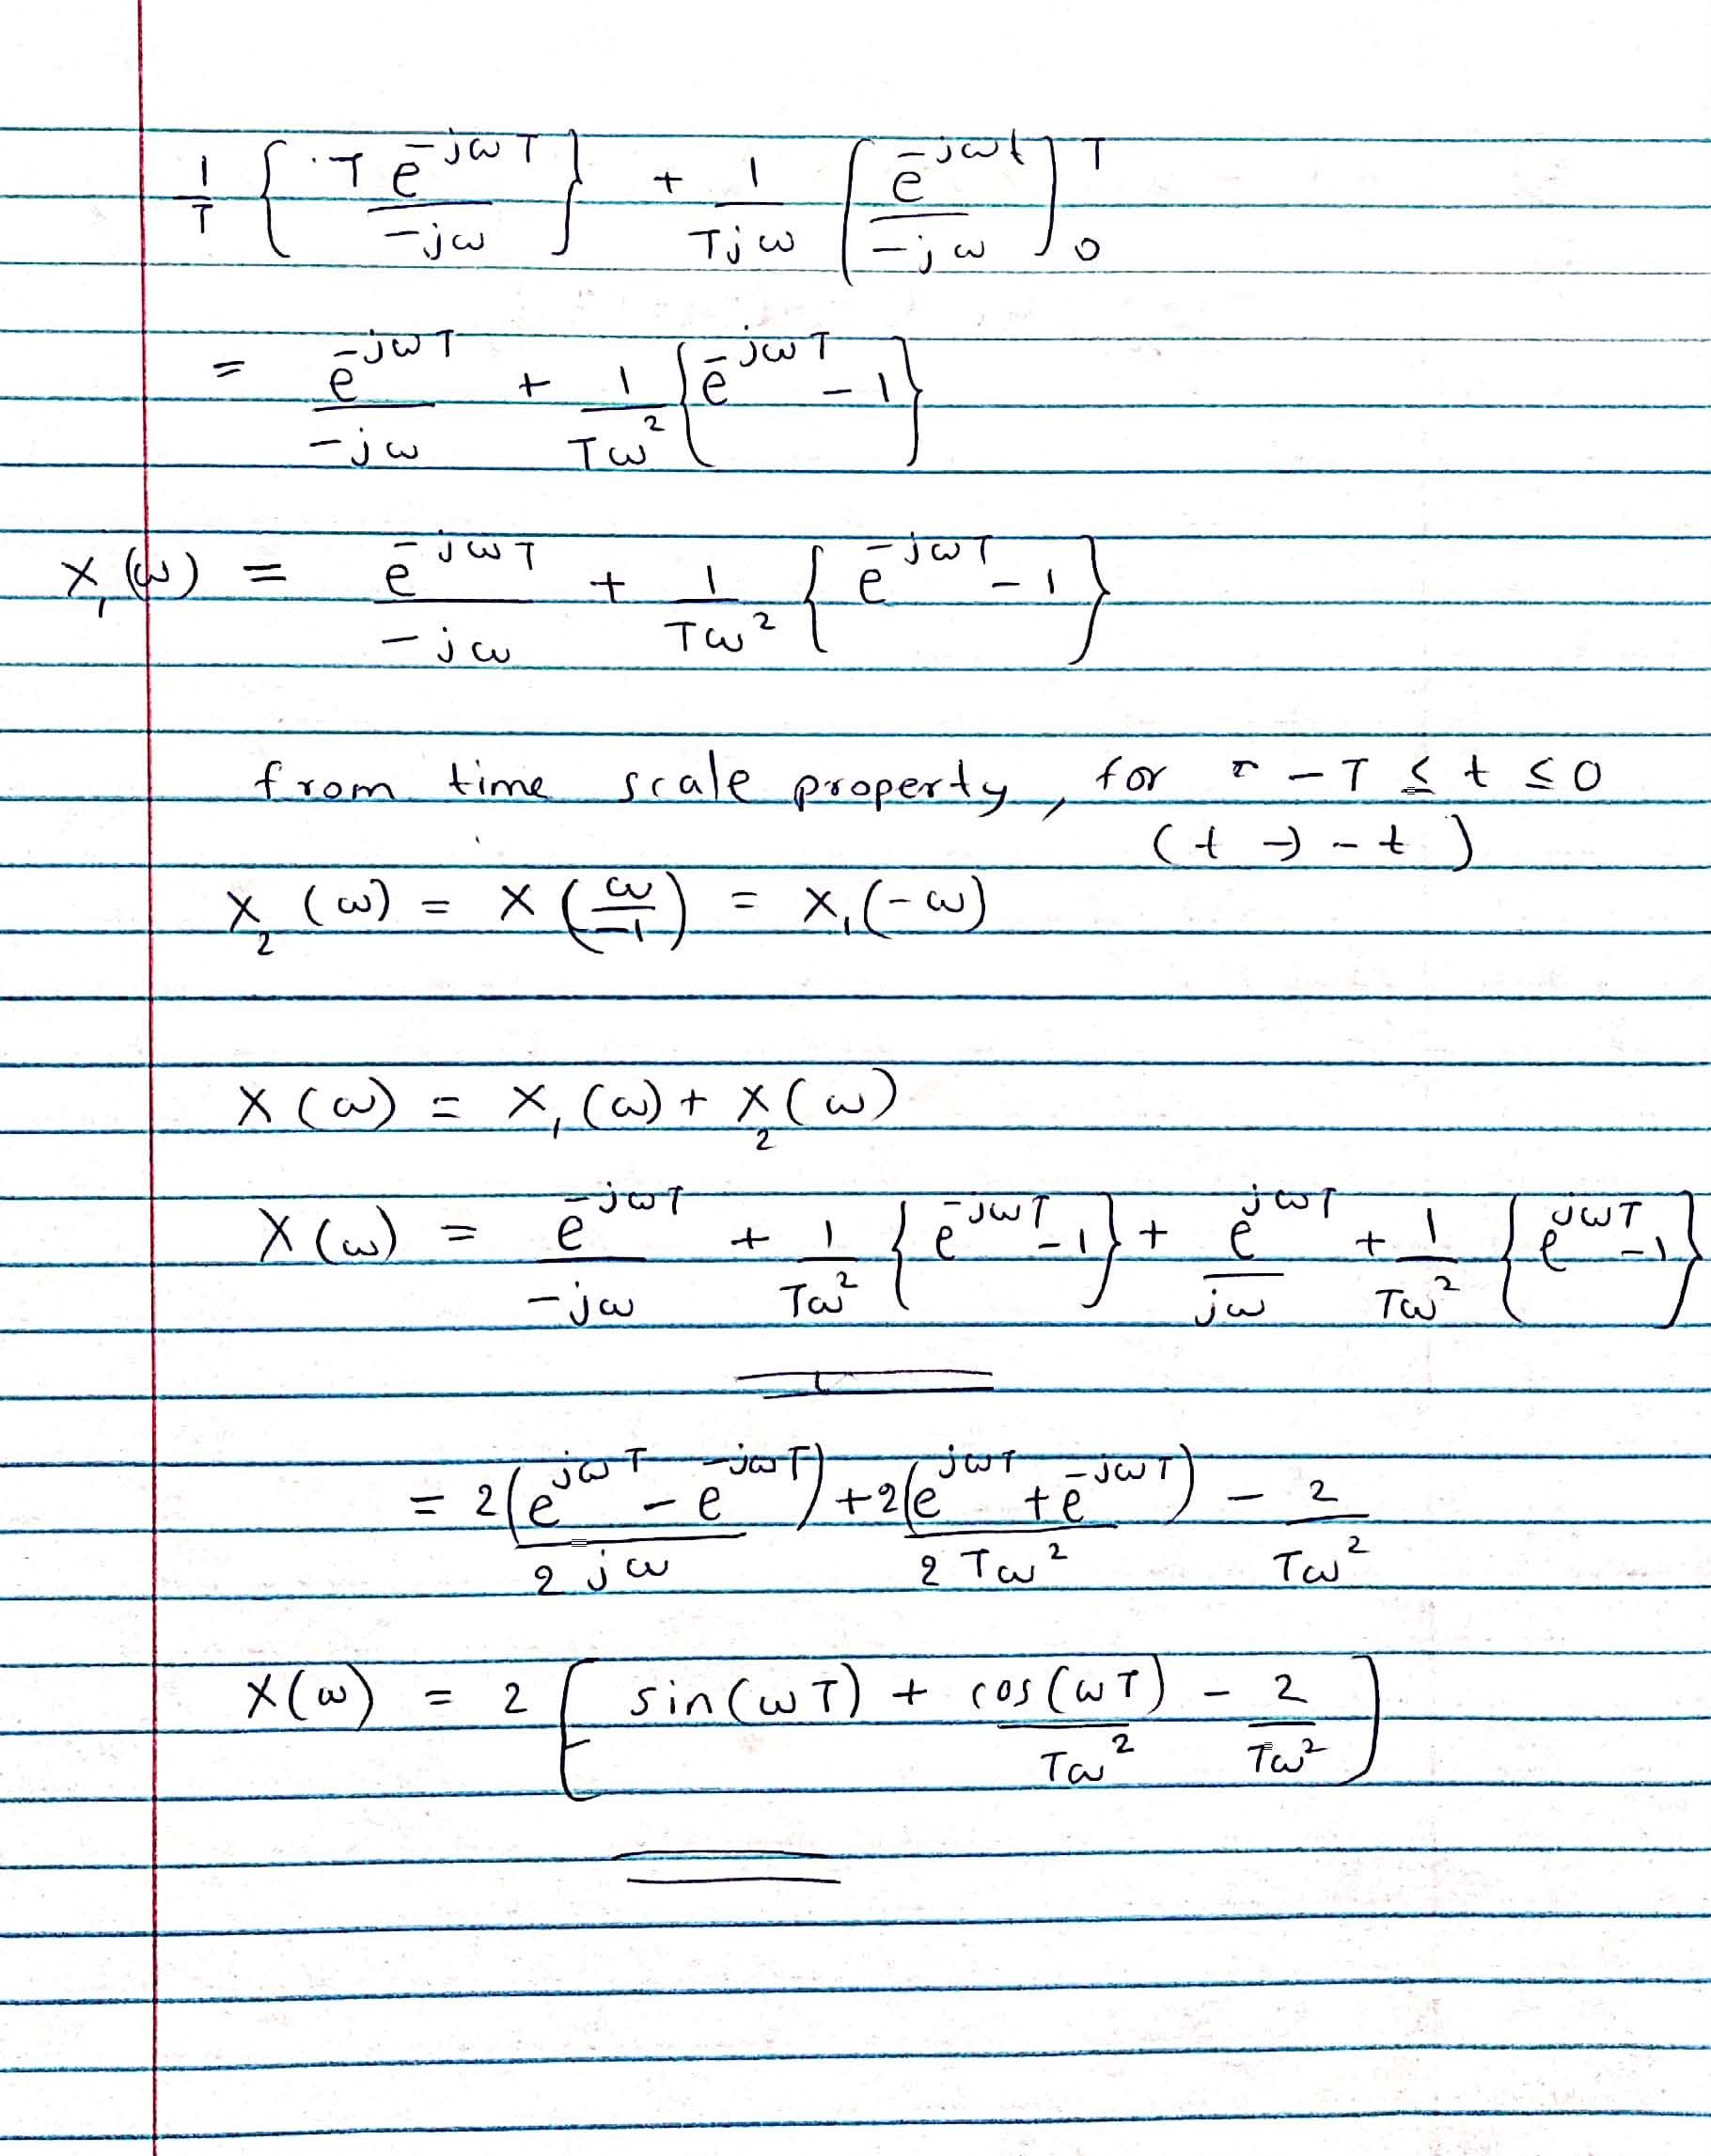 1/T { T e^{-jωT} / -jω } + 1/Tjω [ e^{-jωt} / -jω ]_0^T
= e^{-jωT} / -jω + 1/Tω² { e^{-jωT} - 1 }
X₁(ω) = e^{-jωT} / -jω + 1/Tω² { e^{-jωT} - 1 }
from time scale property, for -T ≤ t ≤ 0
(t → -t)
X₂(ω) = X(ω/-1) = X₁(-ω)
X(ω) = X₁(ω) + X₂(ω)
X(ω) = e^{-jωT} / -jω + 1/Tω² { e^{-jωT} - 1 } + e^{jωT} / jω + 1/Tω² { e^{jωT} - 1 }
= 2(e^{jωT} - e^{-jωT}) / 2jω + 2(e^{jωT} + e^{-jωT}) / 2Tω² - 2/Tω²
X(ω) = 2 [ sin(ωT) + cos(ωT)/Tω² - 2/Tω² ]